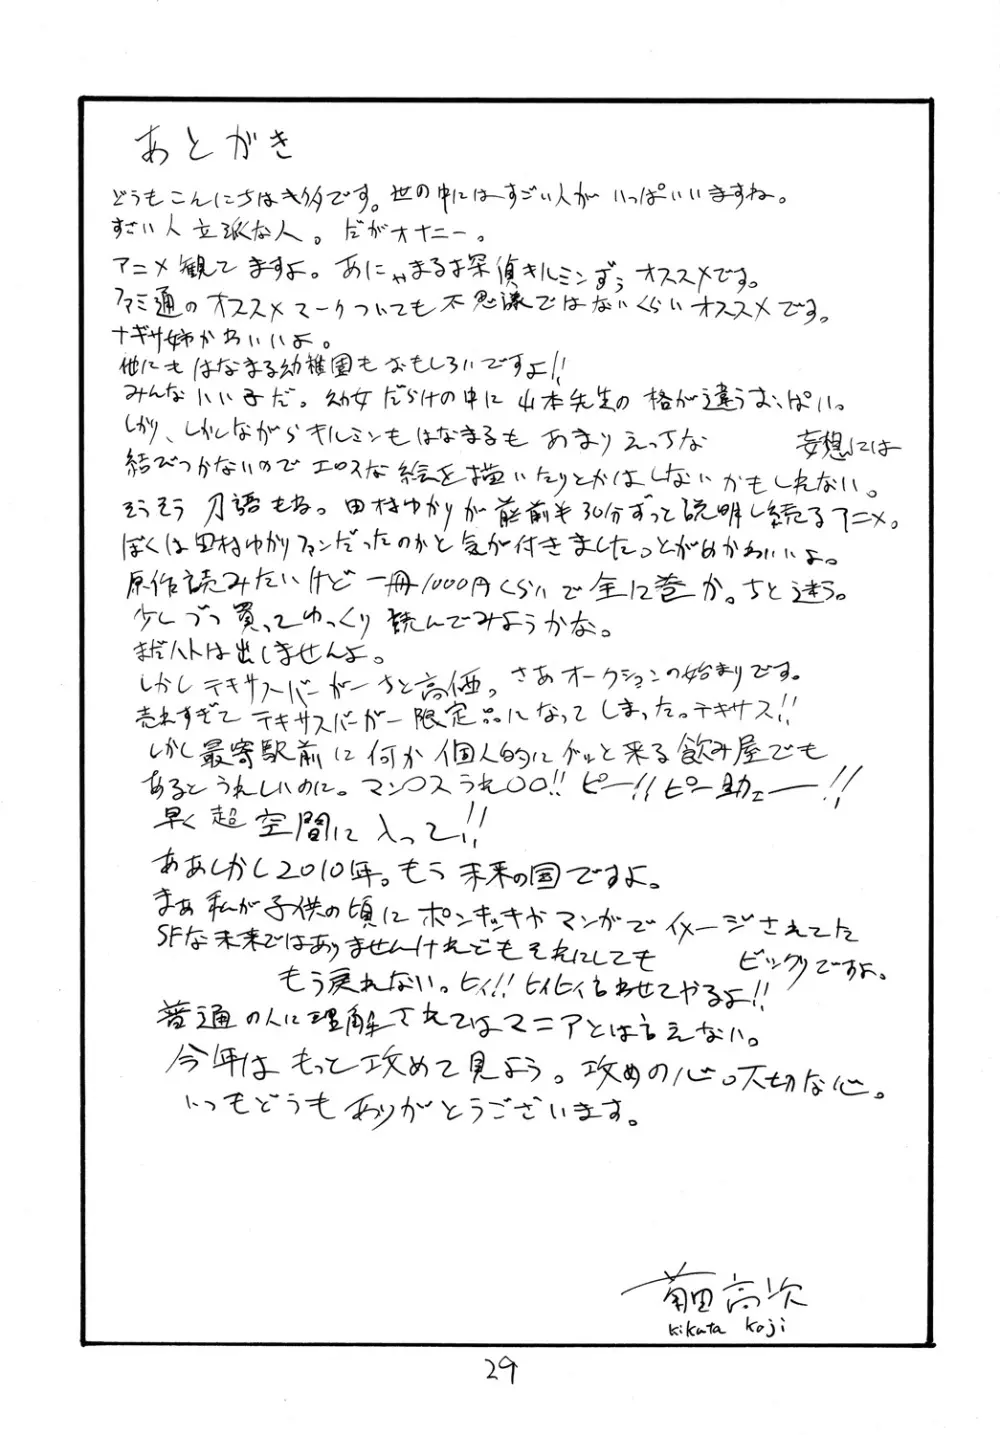 あとがき
どうもこんにちはキ多です。世の中にはすごい人がいっぱいいますね。
すごい人立派な人。だがオナニー。
アニメ観てますよ。あにゃまる探偵キルミンずぅオススメです。
ファミ通のオススメマークついても不思議ではないくらいオススメです。
ナギサ姉かわいいよ。
他にもはなまる幼稚園もおもしろいですよ!!
みんないい子だ。幼女だらけの中に山本先生の格が違うおっぱい。
しかし、しかしながらキルミンもはなまるもあまりえっちな 妄想には
結びつかないのでエロスな絵を描いたりとかはしないかもしれない。
そうそう刀語もね。田村ゆかりが前半30分ずっと説明し続けるアニメ。
ぼくは田村ゆかりファンだったのかと気が付きました。とがめかわいいよ。
原作読みたいけど一冊1000円くらいで全12巻か。ちと迷う。
少しづつ買ってゆっくり読んでみようかな。
まだハトは出しませんよ。
しかしテキサスバーガーちと高価。さあオークションの始まりです。
売れすぎてテキサスバーガー限定品になってしまった。テキサス!!
しかし最寄駅前に何か個人的にグッと来る飲み屋でも
あるとうれしいのに。マン〇スうれ〇〇!!ピー!!ピー助ェー!!
早く超空間に入って!!
ああしかし2010年。もう未来の国ですよ。
まあ私が子供の頃にポンキッキやマンガでイメージされてた
SFな未来ではありませんけれどもそれにしても ビックリですよ。
もう戻れない。ヒィ!!ヒィヒィ言わせてやるよ!!
普通の人に理解されてはマニアとは言えない。
今年はもっと攻めて見よう。攻めの心。大切な心。
いつもどうもありがとうございます。
菊田高次
Kikuta Koji
29